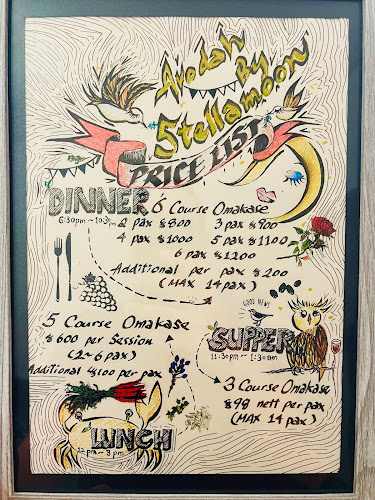 Avodah
By
Stellamoon
PRICE LIST
DINNER
6:30pm ~ 10:30pm
6 Course Omakase
2 pax $800 3 pax $900
4 pax $1000 5 pax $1100
6 pax $1200
Additional per pax $200
(MAX 14pax)
5 Course Omakase
$600 per Session
(2~6 pax)
Additional $100 per pax
LUNCH
12 pm ~ 3 pm
GOOD NEWS
SUPPER
11:30pm ~ 1:30am
3 Course Omakase
$98 nett per pax
(MAX 14 pax)